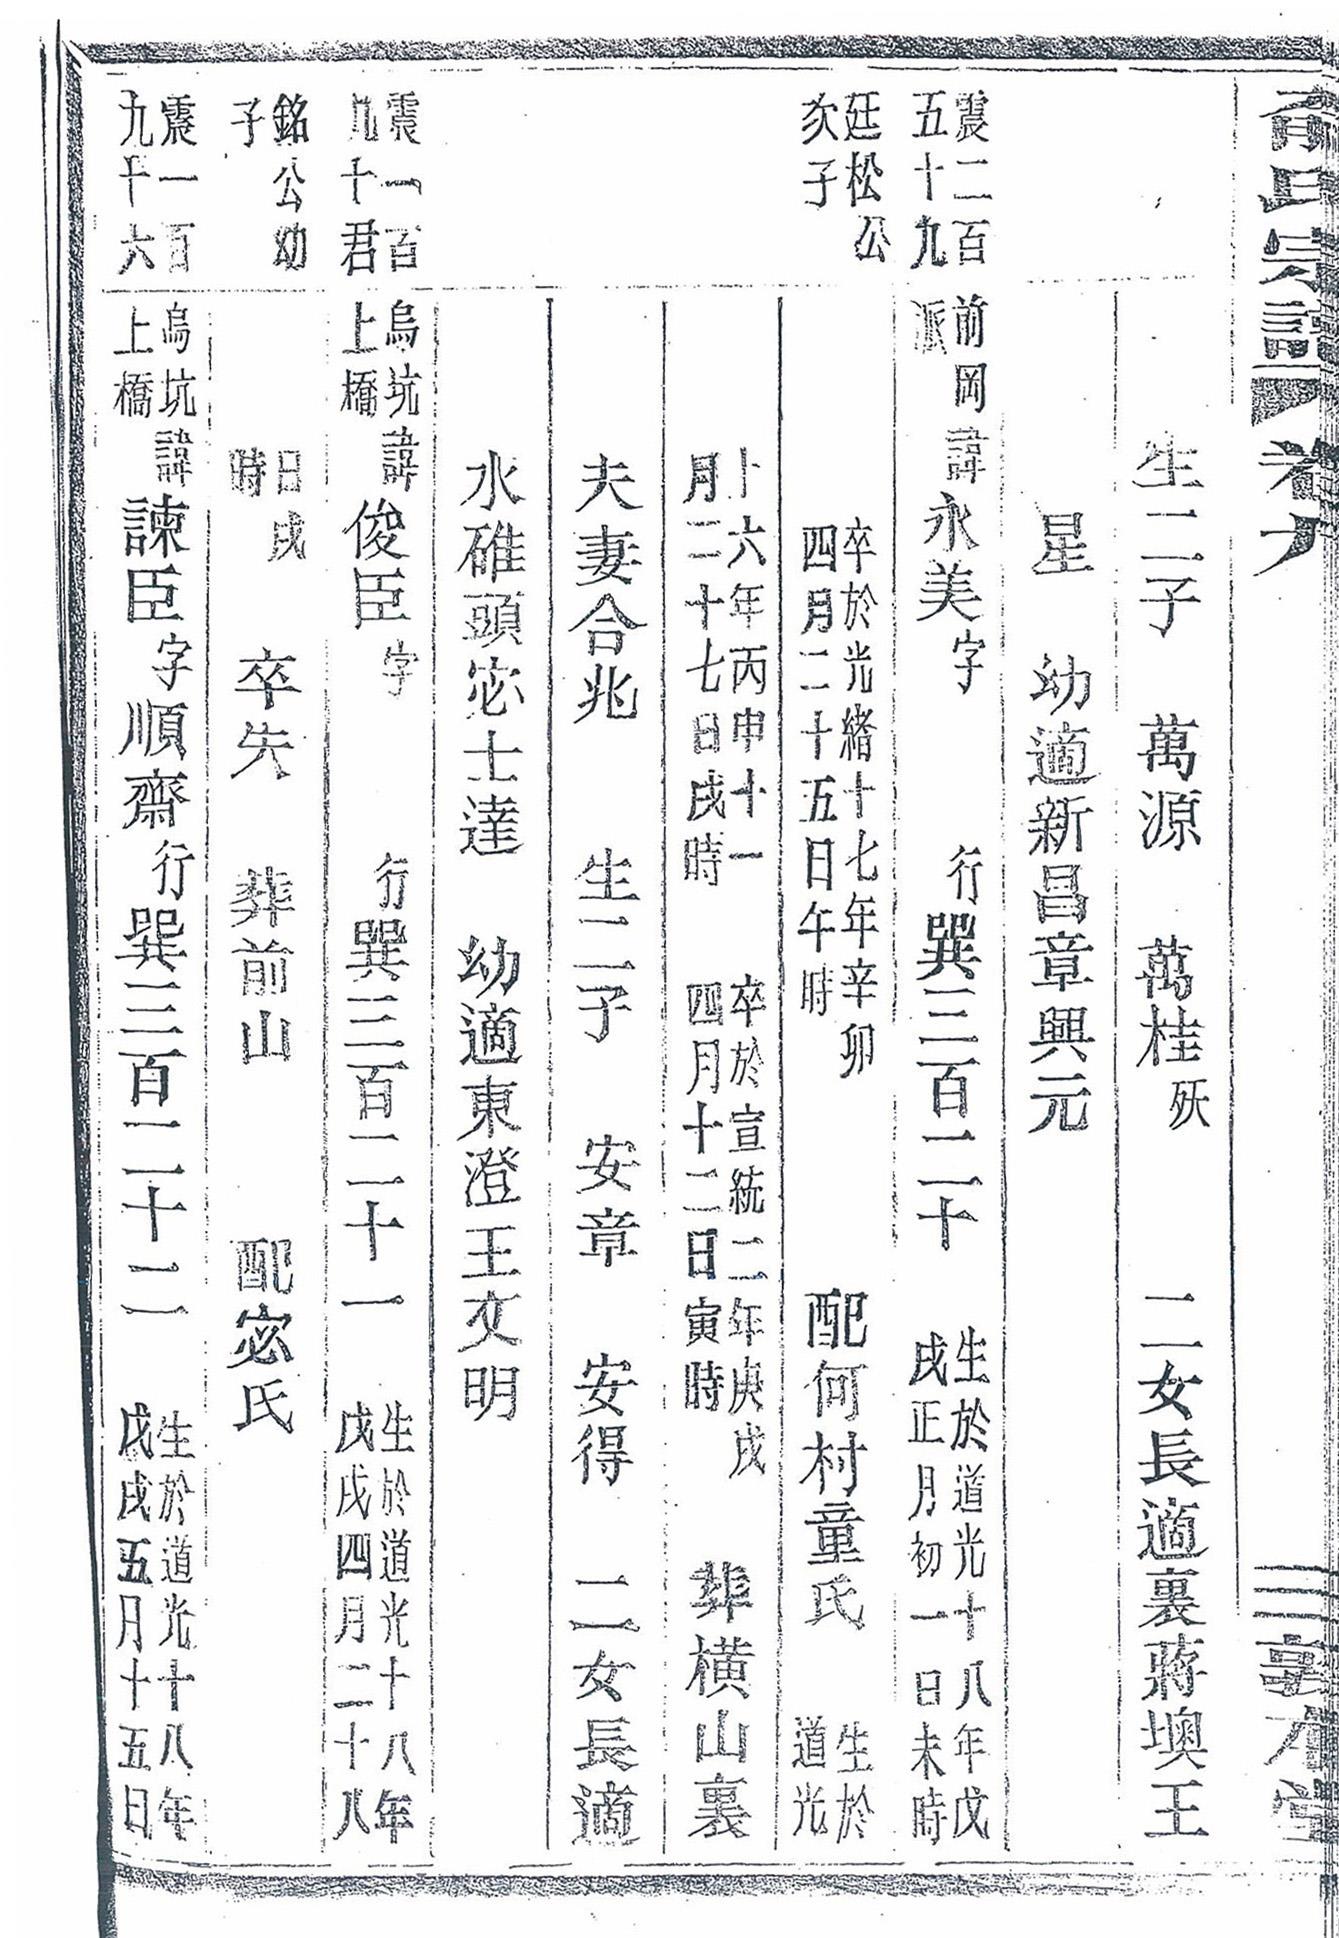 俞氏宗譜 卷八 敦本堂
生二子 萬源 萬桂 殀 二女長適裏蔣墺王
星 幼適新昌章興元
震二百
五十九
前岡
派
諱永美字 行巽三百二十
生於道光十八年戊
戌正月初一日未時
廷松公
次子
卒於光緒十七年辛卯
四月二十五日午時
配何村童氏
生於
道光
十六年丙申十一
月二十七日戌時
卒於宣統二年庚戌
四月十二日寅時
葬橫山裏
夫妻合兆 生二子 安章 安得 二女長適
水碓頭宓士達 幼適東澄王文明
震一百
九十君
烏坑
上橋
諱俊臣字 行巽三百二十一
生於道光十八年
戊戌四月二十八
銘公幼
子
日戌
時
卒失 葬前山 配宓氏
震一百
九十六
烏坑
上橋
諱諫臣字順齋行巽三百二十二
生於道光十八年
戊戌五月十五日